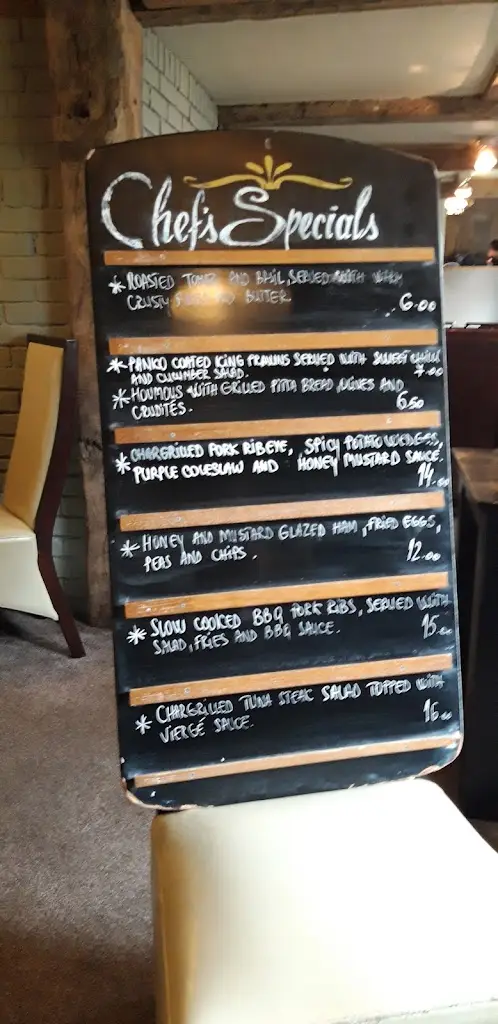 Chef's Specials
* ROASTED TOMATO AND BASIL, SERVED WITH WITH
CRUSTY BUTTER 6.00
* PANKO COATED KING PRAWNS SERVED WITH SWEET CHILLI
AND CUCUMBER SALAD. 7.00
* HOUMOUS WITH GRILLED PITTA BREAD, OLIVES AND
CRUDITÉS. 6.50
* CHARGRILLED PORK RIBEYE, SPICY POTATO WEDGES,
PURPLE COLESLAW AND HONEY MUSTARD SAUCE.
14.00
* HONEY AND MUSTARD GLAZED HAM, FRIED EGGS,
PEAS AND CHIPS. 12.00
* SLOW COOKED BBQ PORK RIBS, SERVED WITH
SALAD, FRIES AND BBQ SAUCE. 15.00
* CHARGRILLED TUNA STEAK SALAD TOPPED WITH
VIERGÉ SAUCE. 16.00